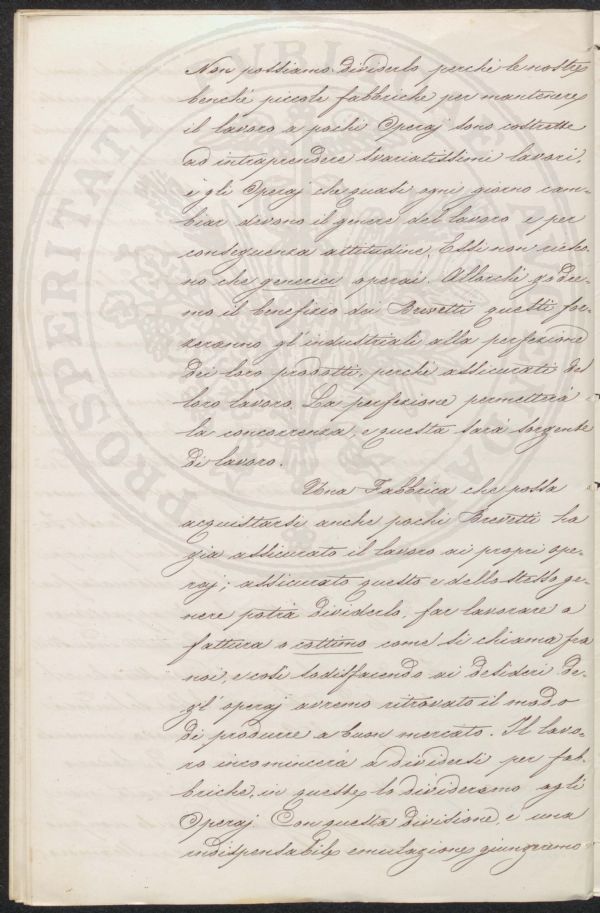 Non possiamo dividerlo, perchè le nostre
benchè piccole fabbriche per mantenere
il lavoro a pochi Operaj sono costrette
ad intraprendere svariatissimi lavori,
e gli Operaj che quasi ogni giorno cam-
biar devono il genere del lavoro e per
conseguenza attitudine, Essi non riesco-
no che generici operai. Allorchè godre-
mo il benefizio dei Brevetti questi for-
zeranno gl'industriali alla perfezione
dei loro prodotti, perchè assicurati del
loro lavoro. La perfezione permetterà
la concorrenza, e questa sarà sorgente
di lavoro.
Una Fabbrica che possa
acquistarsi anche pochi Brevetti ha
già assicurato il lavoro ai propri ope-
raj; assicurato questo e dello stesso ge-
nere potrà dividerlo, far lavorare a
fattura o cottimo come si chiama fra
noi, e così sodisfacendo ai desideri de-
gl'operaj avremo ritrovato il modo
di produrre a buon mercato. Il lavo-
ro incomincerà a dividersi per fab-
briche, in queste lo divideremo agli
Operaj. Con questa divisione, e una
indispensabile emulazione giungeremo
PROSPERITATI